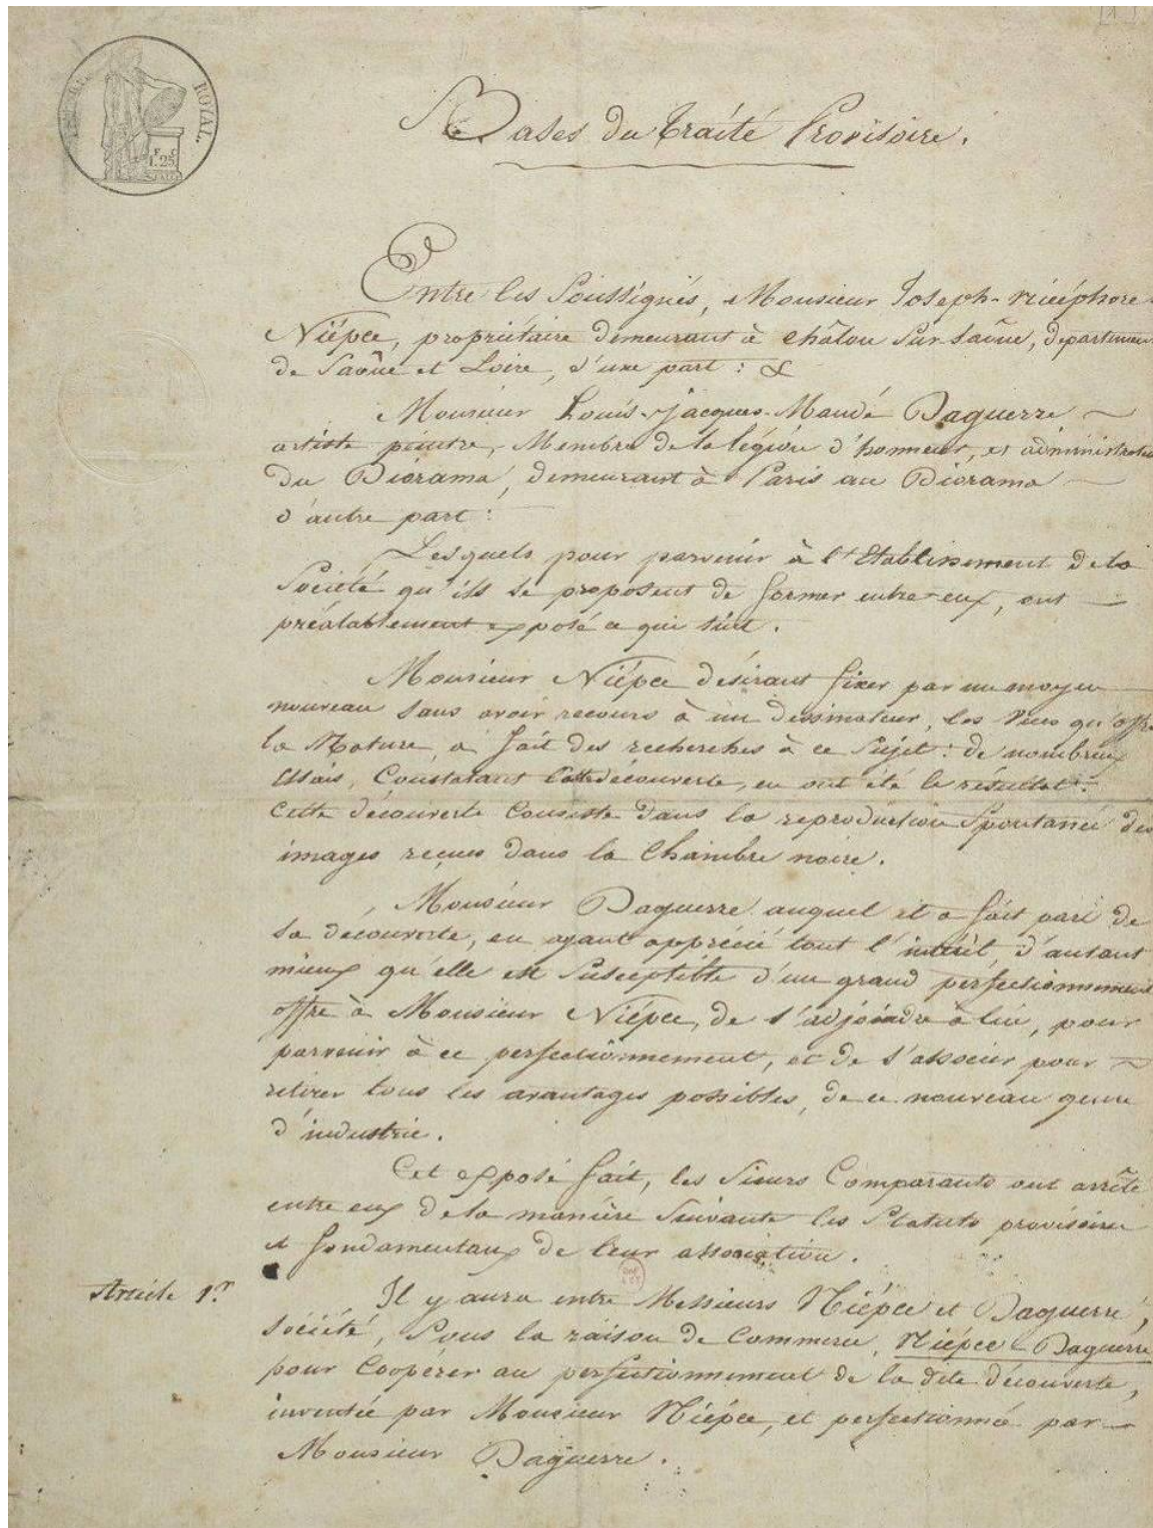 [1]
TIMBRE ROYAL.
F C
1.25
Bases du traité Provisoire.
Entre les Soussignés, Monsieur Joseph-nicéphore
Niépce, propriétaire demeurant à châlon Sur-Saône, departement
de Saône et Loire, d'une part : &
Monsieur Louis-jacques-Mandé Daguerre
artiste peintre, Membre de la légion d'honneur, et administrateur
du Diorama, demeurant à Paris au Diorama
d'autre part :
Lesquels pour parvenir à l'Etablissement de la
Société qu'ils se proposent de former entre-eux, ont
préalablement exposé ce qui suit.
Monsieur Niépce désirant fixer par un moyen
nouveau sans avoir recours à un dessinateur, les Vues qu'offre
la Nature, a fait des recherches à ce Sujet : de nombreux
essais, Constatant Cette découverte, en ont été le résultat.
Cette découverte Consiste dans la reproduction Spontanée des
images reçues dans la Chambre noire.
Monsieur Daguerre auquel il a fait part de
sa découverte, en ayant apprécié tout l'intérêt, d'autant
mieux qu'elle est Susceptible d'un grand perfectionnement
offre à Monsieur Niépce, de s'adjoindre à lui, pour
parvenir à ce perfectionnement, et de s'associer pour
retirer tous les avantages possibles, de ce nouveau genre
d'industrie.
Cet exposé fait, les Sieurs Comparants ont arrêté
entre eux de la manière Suivante les Statuts provisoires
et fondamentaux de leur association.
Article 1er.
Il y aura entre Messieurs Niépce et Daguerre,
société, Sous la raison de Commerce, Niépce-Daguerre
pour Coopérer au perfectionnement de la dite découverte,
inventée par Monsieur Niépce, et perfectionné par
Monsieur Daguerre.